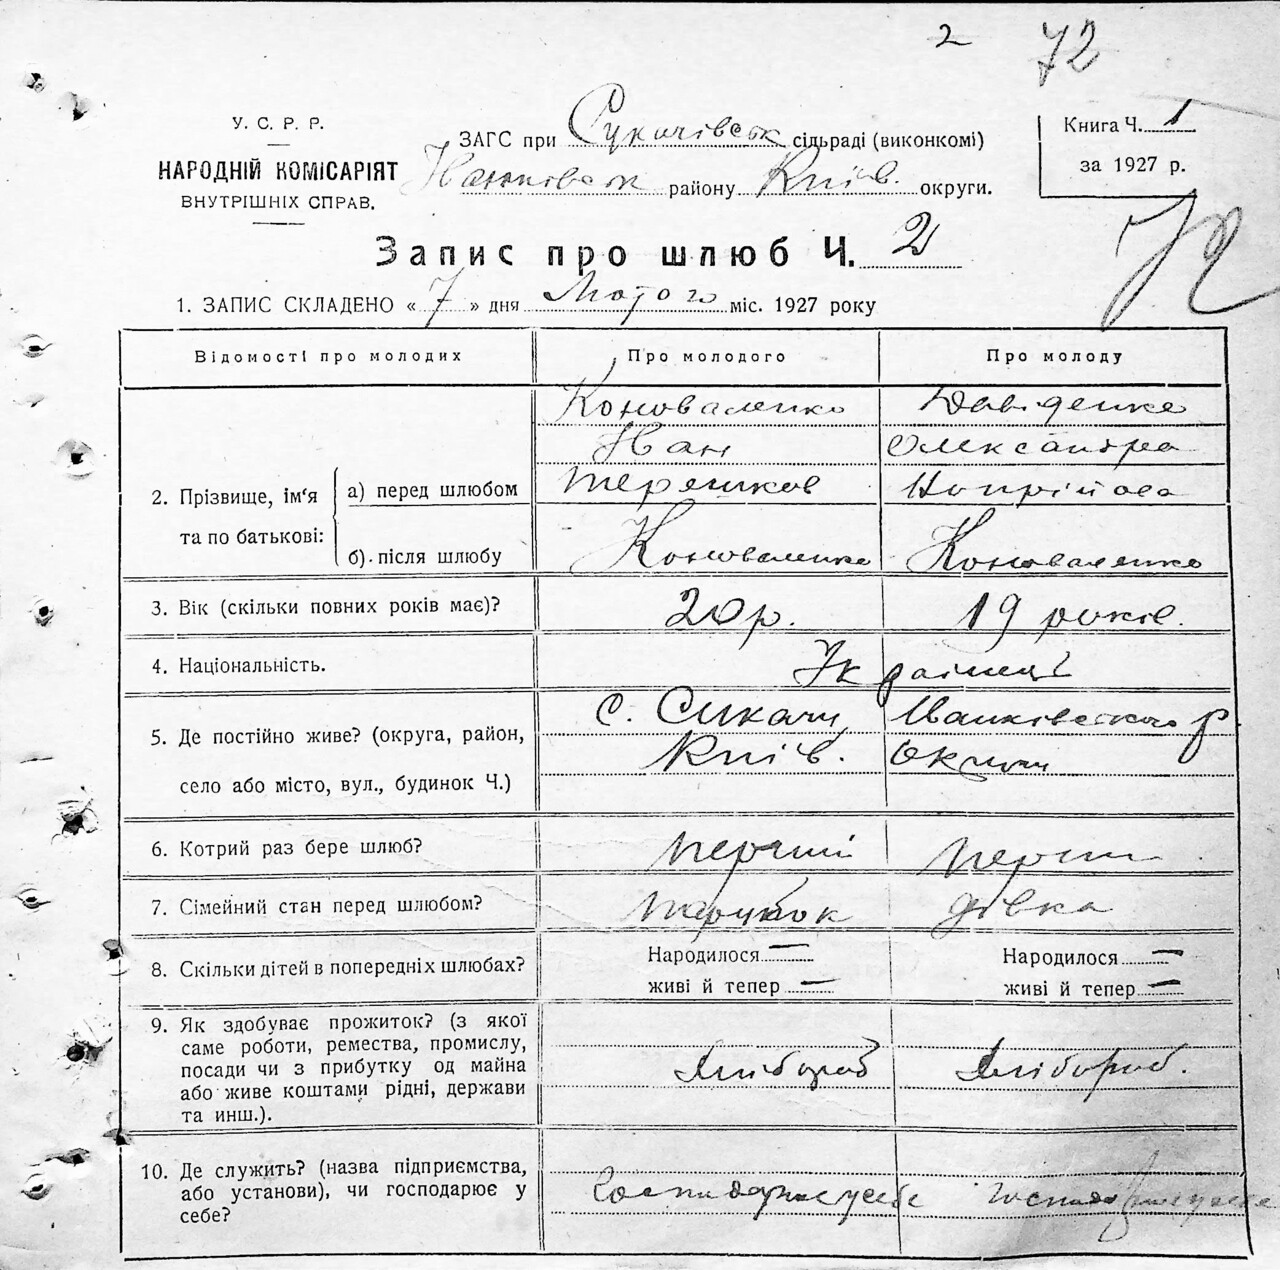 2 72
У. С. Р. Р.
НАРОДНІЙ КОМІСАРІЯТ
ВНУТРІШНІХ СПРАВ.
ЗАГС при Сукачівськ сільраді (виконкомі)
Іванківськ району Київ. округи.
Книга Ч. 1
за 1927 р.
72
Запис про шлюб Ч. 2
1. ЗАПИС СКЛАДЕНО « 7 » дня Лютого міс. 1927 року
Відомості про молодих Про молодого Про молоду
2. Прізвище, ім'я та по батькові:
а) перед шлюбом
Коноваленко Давіденко
Іван Олександра
Терешков
б) після шлюбу
Коноваленко Коноваленко
3. Вік (скільки повних років має)? 20 р. 19 років.
4. Національність. Українці
5. Де постійно живе? (округа, район,
село або місто, вул., будинок Ч.)
с. Сукачи, Іванківського р.
Київ. округи
6. Котрий раз бере шлюб? перший перши
7. Сімейний стан перед шлюбом? парубок дівка
8. Скільки дітей в попередніх шлюбах?
Народилося — Народилося —
живі й тепер — живі й тепер —
9. Як здобуває прожиток? (з якої
саме роботи, ремества, промислу,
посади чи з прибутку од майна
або живе коштами рідні, держави
та инш.).
Хлібороб Хлібороб.
10. Де служить? (назва підприємства,
або установи), чи господарює у
себе?
господарює у себе господарює у себе